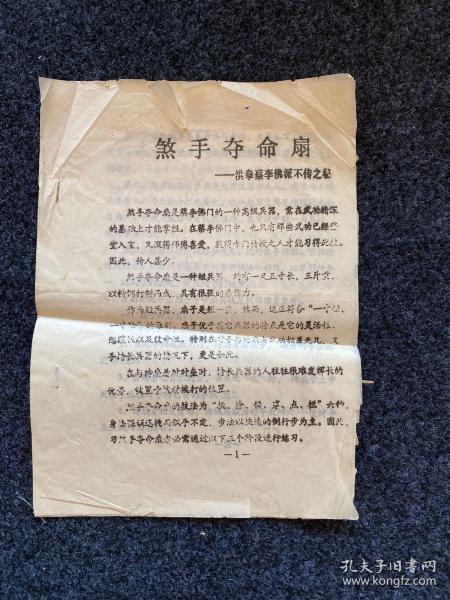 煞手夺命扇
——洪拳蔡李佛派不传之秘
煞手夺命扇是蔡李佛门的一种高级兵器，需在武功精深
的基础上才能掌握。在蔡李佛门中，也只有那些武功已经登
堂入室，又深得师傅喜爱，获得专门传授之人才能习得此技。
因此，传人甚少。
煞手夺命扇是一种短兵器，约有一尺五寸长，三斤重，
以精钢打制而成，具有很强的杀伤力。
作为短兵器，扇子是短一些，然而，这正符合“一寸短，
扇子优于其它兵器的特点是它的灵活性、
特别在
手持长兵器的情况下，更是如此。
在与持扇者对垒时，持长兵器的人往往很难发挥长的
优势，被置于被动挨打的位置。
煞手夺命扇的技法为“点、拦”六种，
身法强调迅捷而似乎不定，步法以快速的倒行步为主。因此，
习煞手夺命扇者必需通过以下三个阶段进行练习。
—1—
孔夫子旧书网
www.kongfz.com